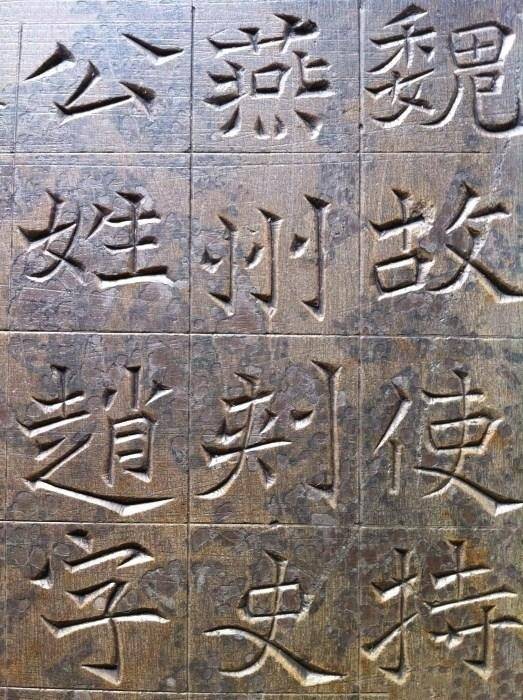 魏故使持
燕州刺史
公姓趙字